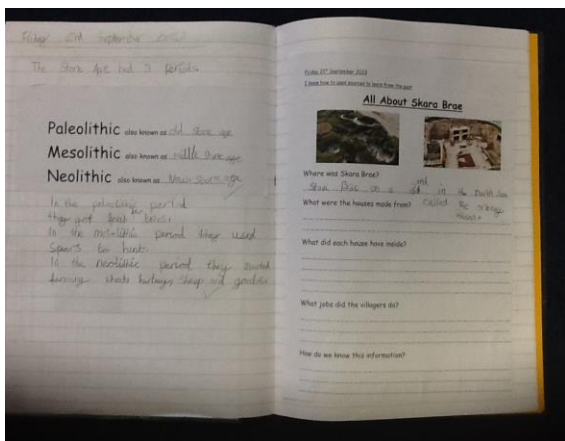 Friday September
The Stone Age had 3 Periods.
Paleolithic also known as old stone age
Mesolithic also known as middle stone age
Neolithic also known as New stone age
In the paleolithic period
they got food
In the mesolithic period they used
Spears to hunt.
In the Neolithic period they started
farming sheep and
Friday September 2023
I know how to used sources to learn from the past
All About Skara Brae
Where was Skara Brae?
in the North Sea
What were the houses made from? called
What did each house have inside?
What jobs did the villagers do?
How do we know this information?